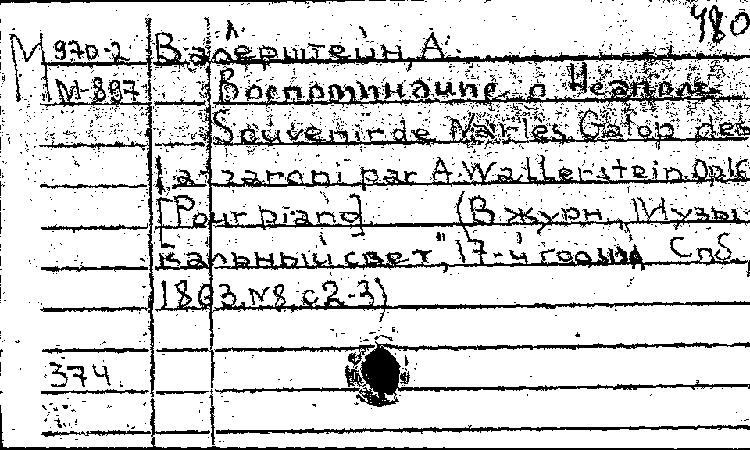 480
М 970-2 Валлерштейн, А.
М-887 Воспоминание о Неаполе
Souvenir de Naples. Galop des
lazzaroni par A. Wallerstein. Op.
[Pour piano] (В журн. „Музы-
кальный свет", 17-й год изд. Спб.,
1863, №8, с 2-3)
374